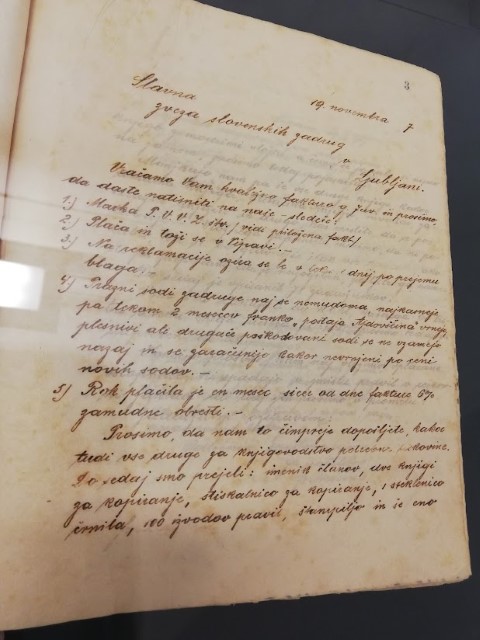 3
Slavna 19. novembra 7
zveza slovenskih zadrug
v
Ljubljani.
Vračamo Vam hvaležno fakturo g. Juv. in prosimo,
da daste natisniti na naše sledeče:
1.) Marka P. V. V. Z. štv. / vidi priloženo fakt./
2.) Plača in toži se v Vipavi. —
3.) Na reklamacije ozira se le v dnej po prejemu
blaga. —
4.) Prazni sodi zadruge naj se nemudoma, najkasneje
pa tekom 2 mesecev franko, postaja Ajdovščina vrnejo,
plesnivi ali drugače poškodovani sodi se ne vzamejo
nazaj in se zaračunijo kakor nevrnjeni po ceni
novih sodov. —
5.) Rok plačila je en mesec, sicer od dne fakture 5%
zamudne obresti. —
Prosimo, da nam to čimpreje dopošljete, kakor
tudi vse druge za knjigovodstvo potrebne tiskovine.
Do sedaj smo prejeli: imenik članov, dve knjigi
za kopiranje, stiskalnico za kopiranje, 1 steklenico
črnila, 100 izvodov pravil, štampiljo in še eno